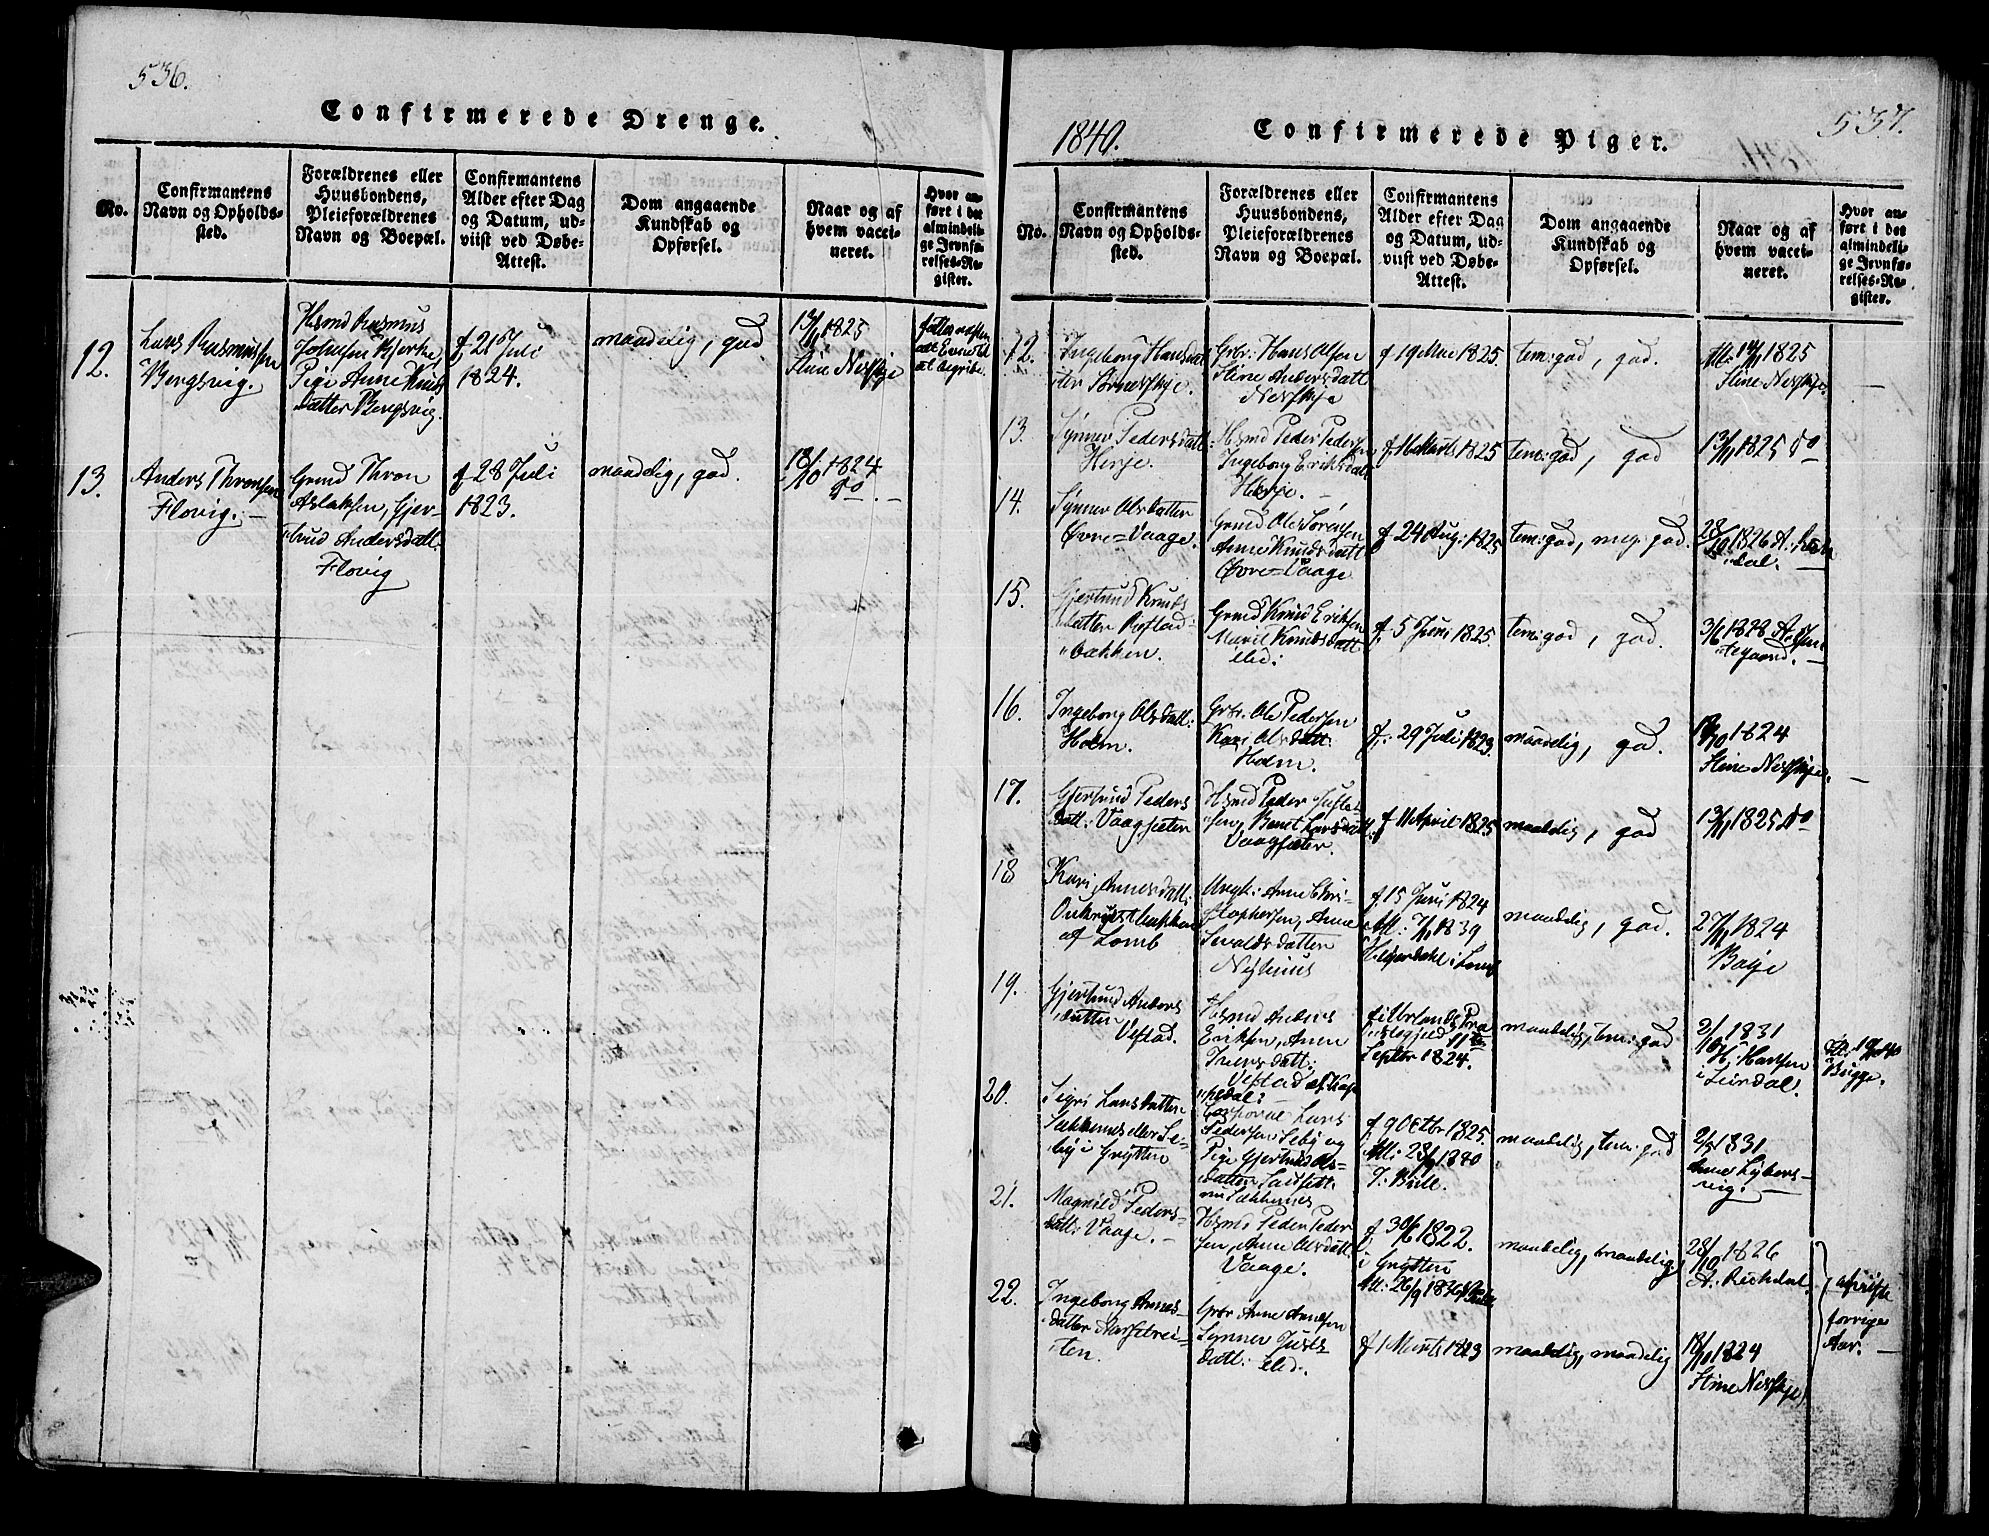 536.
Confirmerede Drenge.
No.
Confirmantens
Navn og Opholds-
sted.
Forældrenes eller
Huusbondens,
Pleieforældrenes
Navn og Boepæl.
Confirmantens
Alder efter Dag
og Datum, ud-
viist ved Døbe-
Attest.
Dom angaaende
Kundskab og
Opførsel.
Naar og af
hvem vacci-
neret.
Hvor an-
ført i det
almindeli-
ge Jevnfø-
relses-Re-
gister.
12.
Lars Rasmussen
Bergsvig.
Hsmd Rasmus
Johnsen Bjerke,
Pige Anne Knuds
datter Bergsvig.
f 21 Juli
1824.
maadelig, god.
13/11 1825
Stine Nesskje
13.
Anders Thronsen
Flovig.
Grmd Thron
Aslaksen, Gjer-
trud Andersdatt.
Flovig
f 28 Juli
1823.
maadelig, god.
18/10 1824
do
537.
1840.
Confirmerede Piger.
No.
Confirmantens
Navn og Opholds-
sted.
Forældrenes eller
Huusbondens,
Pleieforældrenes
Navn og Boepæl.
Confirmantens
Alder efter Dag
og Datum, ud-
viist ved Døbe-
Attest.
Dom angaaende
Kundskab og
Opførsel.
Naar og af
hvem vacci-
neret.
Hvor an-
ført i det
almindeli-
ge Jevnfø-
relses-Re-
gister.
12.
Ingeborg Hansdat
ter
Grbr: Hans Olsen
Stine Andersdatt
Nesskje
f 19 Mai 1825.
tem: god, god.
Att: 14/11 1825
Stine Nesskje.
13.
Synnev Pedersdatt:
Herje.
Hsmd Peder Pedersen
Ingeborg Eriksdatt
Herje.
f 16 Marts 1825
tem: god, god
13/11 1825 do
14.
Synnev Olsdatter
Øvre=Vaage.
Grmd Ole Sørensen
Anne Knudsdatt
Øvre=Vaage
f 24 Aug: 1825
tem: god, meg: god.
28/10 1826 A.
15.
Gjertrud Knuds
datter
bakken.
Grmd Knud Eriksen
Marit Knudsdatt
ibid:
f. 5 Juni 1825.
tem: god, god.
3/6 1828
16.
Ingeborg Olsdatt:
Holm.
Grbr: Ole Pedersen
Kari Olsdatt:
Holm.
f: 29 Juli 1823.
maadelig, god.
18/10 1824
Stine Nesskje.
17.
Gjertrud Peders
datt: Vaagsæter
Hsmd Peder
sen, Beret Larsdatt:
Vaagsæter.
f 11 April 1825
maadelig, god
13/11 1825 do
18
Kari Arnesdatt:
af Lomb
Ungk: Arne Chri-
stophersen, Anne
Sevaldsdatter
f 15 Juni 1824
Att: 7/11 1839
maadelig, god.
27/11 1824
19.
Gjertrud Anders
datter
Vestad.
Hsmd Anders
Eriksen, Anne
Iversdatt:
Vestad af
f i Borlands Præ
stegjeld 11te
Septbr 1824.
maadelig, tem: god
2/10 1831
H: Hansen
i Leirdal.
Bugge.
20.
Sigri Larsdatter
Sækkenes eller Se-
by i Grytten
Corporal Lars
Pedersen Seby og
Pige Gjertrud Ols-
datter
Sækkenes
f 9 Octbr 1825.
Att: 28/9 1840
J. Bull.
maadelig, tem: god
2/5 1831
21.
Magnild Peders-
datt: Vaage.
Hsmd Peder Peder
sen, Anne Olsdatt
Vaage.
f 30/6 1822.
i Grytten
maadelig, maadelig
28/10 1826
A.
22.
Ingeborg Arnes-
datter Aarsetrei-
ten.
Grbr Arne Arnesen
Synnev
datt: ibid.
f 1 Marts 1823
maadelig, maadelig
18/10 1824
Stine Nesskje
afviiste
forrige
Aar.